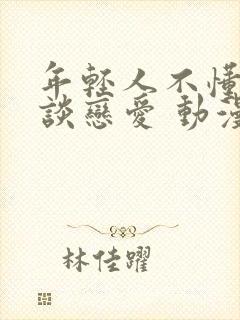 年輕人不懂
談戀愛 動漫
林佳躍